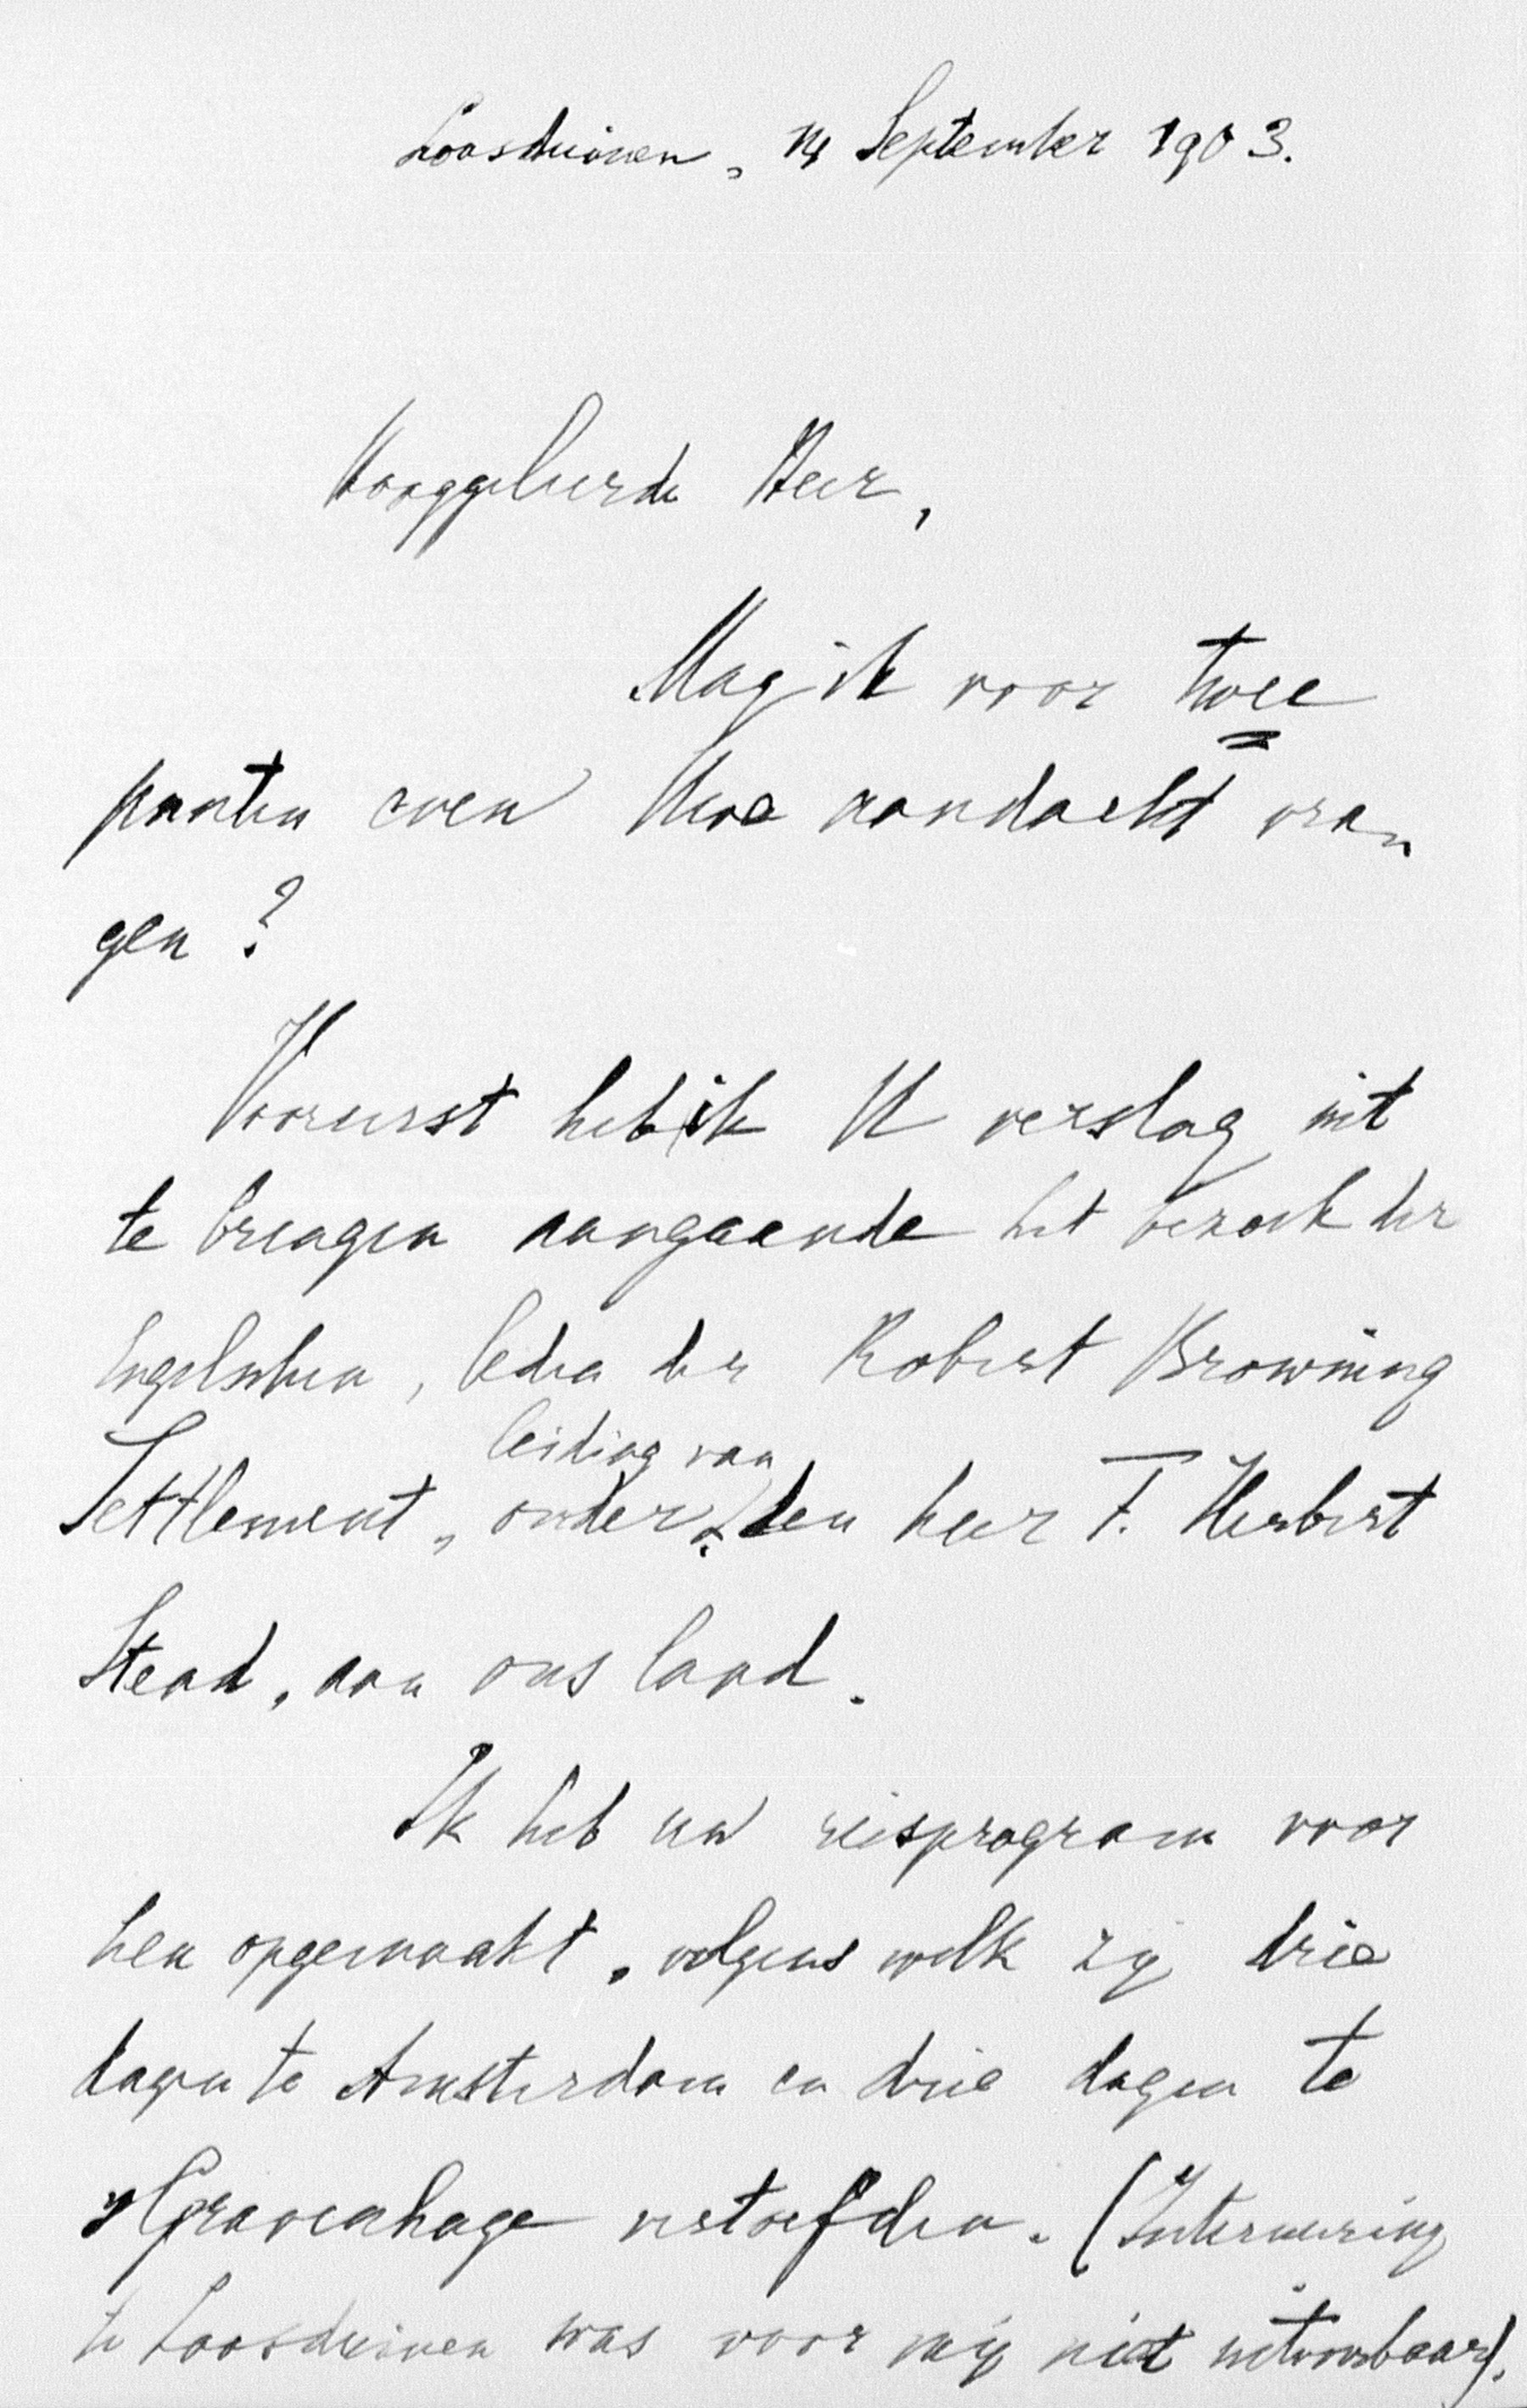 Loosduinen, 14 September 1903.
Hooggeleerde Heer,
Mag ik voor twee
punten even Uwe aandacht vra-
gen?
Vooreerst heb ik U verslag uit
te brengen aangaande het bezoek der
Engelschen, leden der Robert Browning
leiding van
Settlement, onder den heer F. Herbert
Stead, aan ons land.
Ik heb een reisprogram voor
hen opgemaakt, volgens welk zij drie
dagen te Amsterdam en drie dagen te
's Gravenhage vertoefden. (Interneering
te Loosduinen was voor mij niet uitvoerbaar).